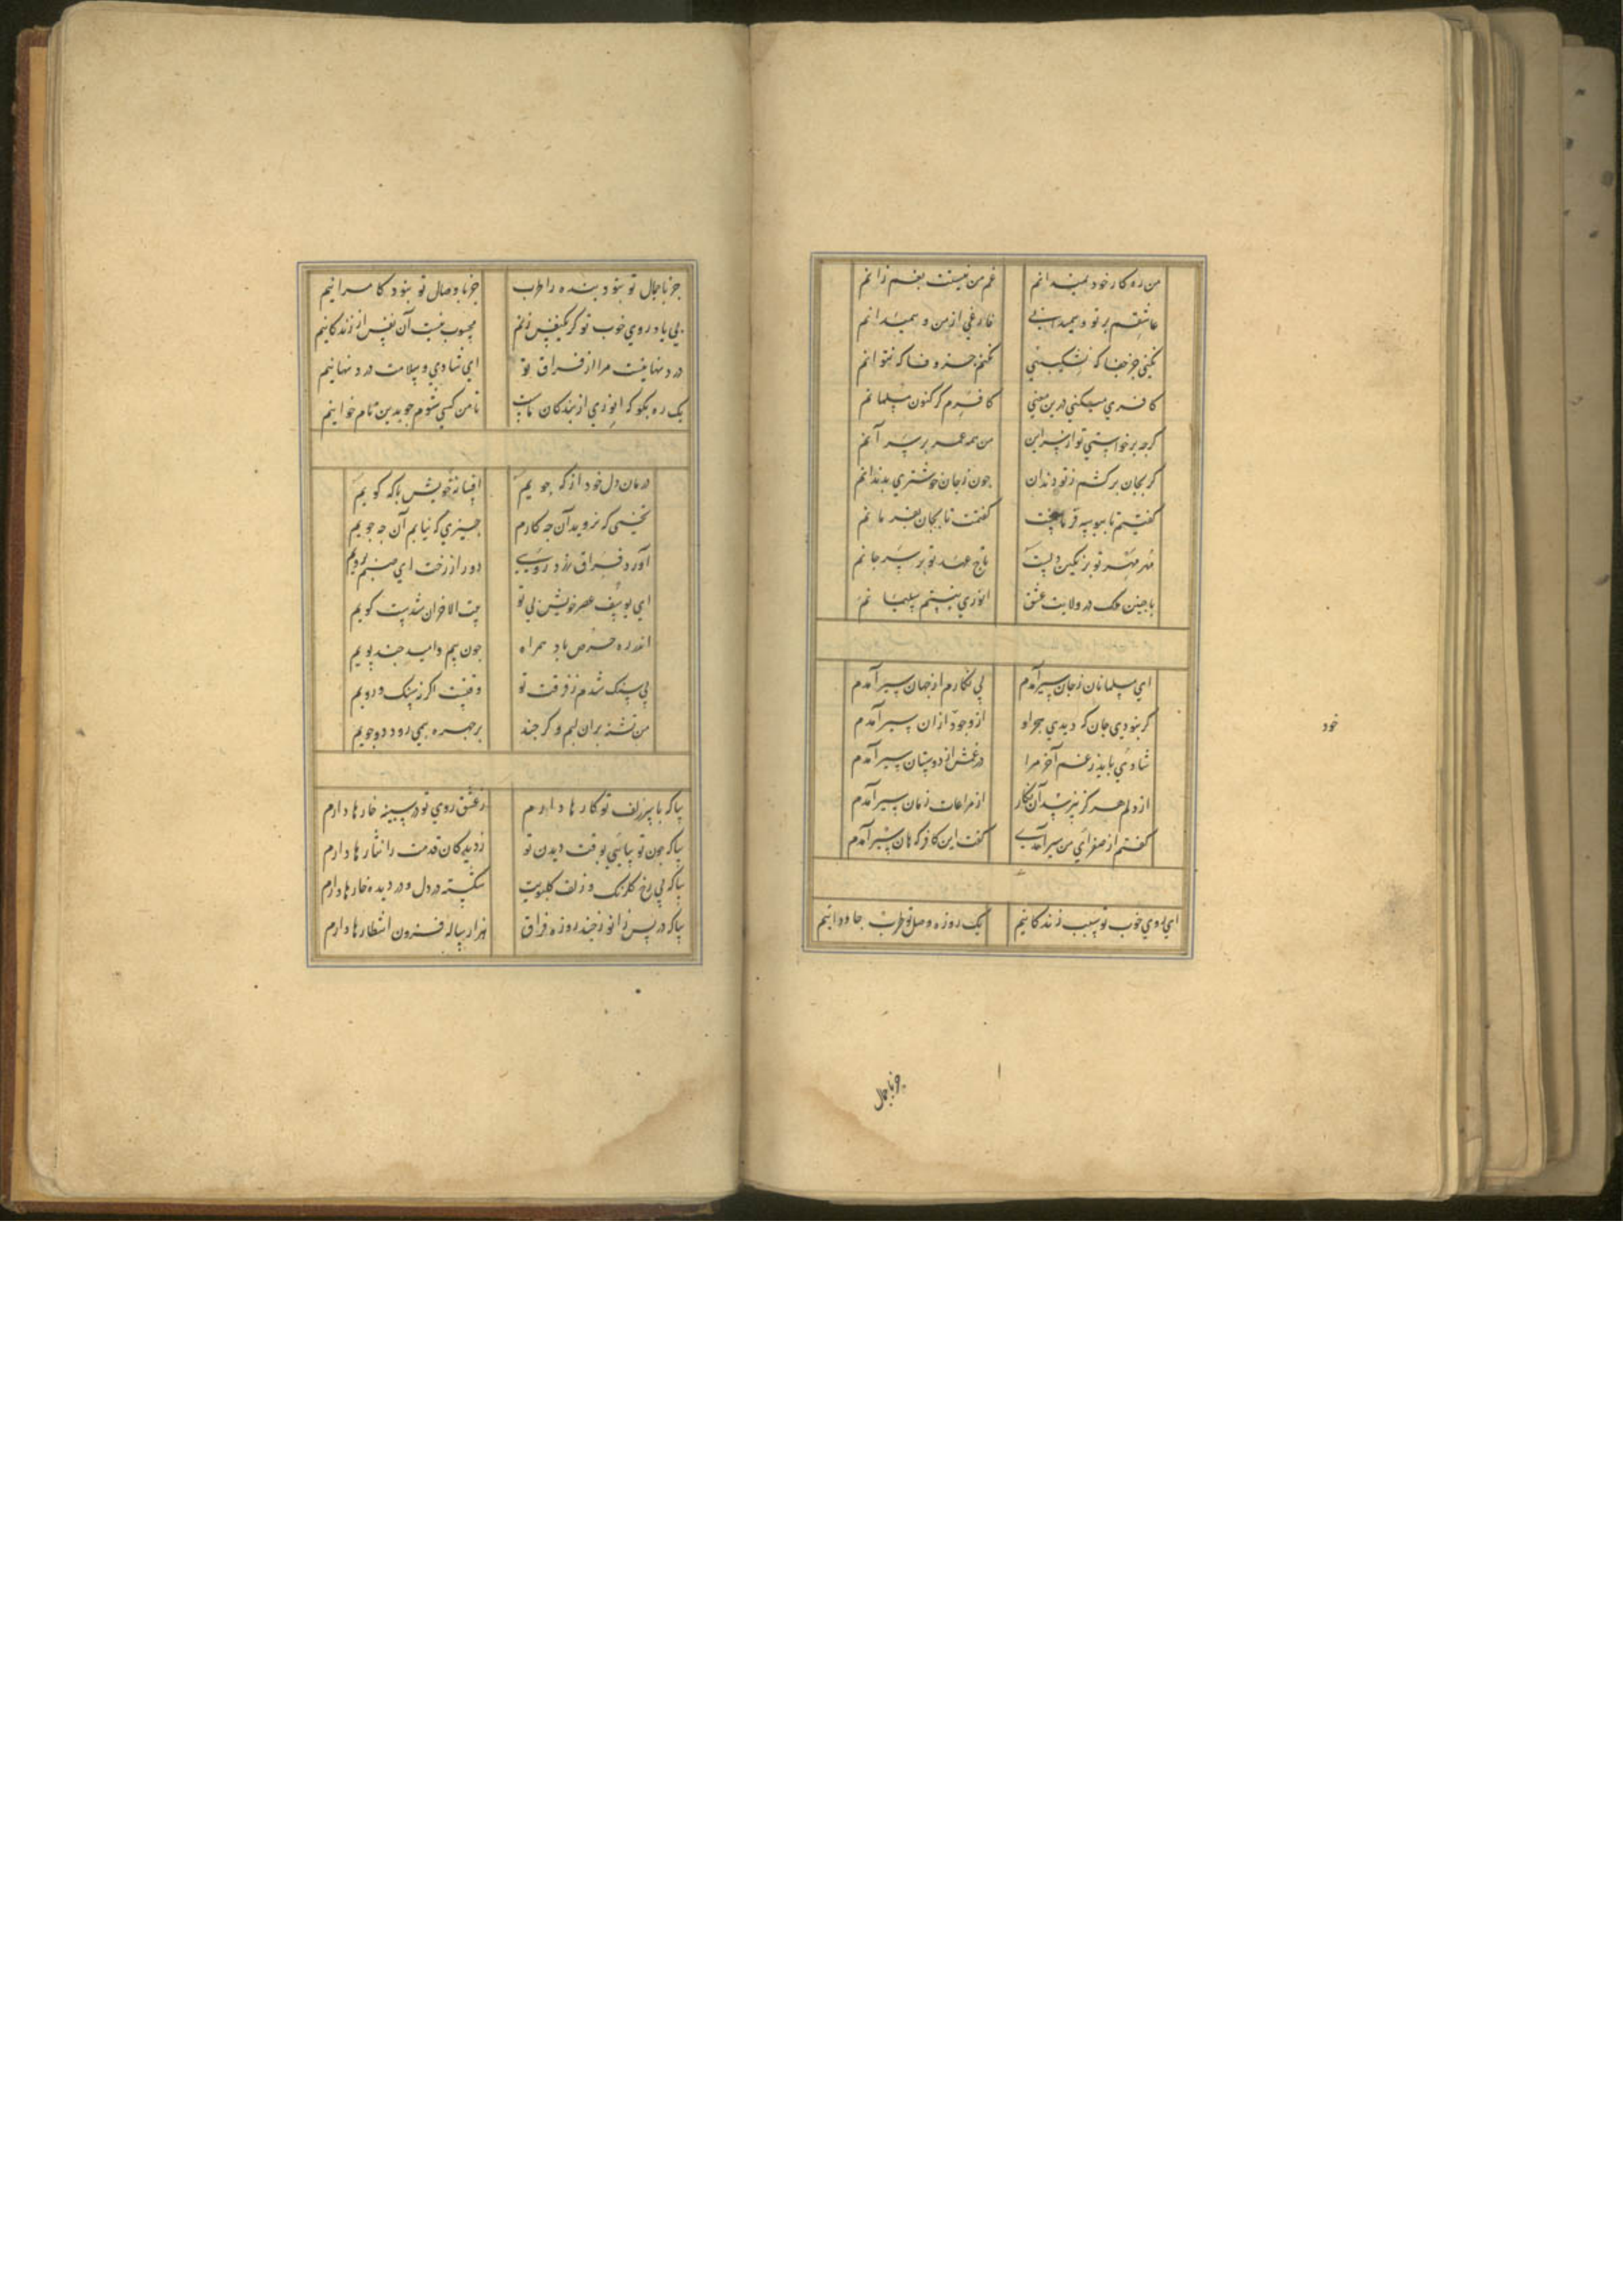 من ره کار خود نمیدانم غم من نیستت بغم زانم
عاشقم بر تو و همیدانی فارغی از من و همیدانم
نکنی جز جفا که نشکیبی نکنم جز وفا که نتوانم
کافری میکنی درین معنی کافرم گر کنون مسلمانم
گرچه برخواستی تو از سر این من همه عمر بر سر آنم
گر بجان برکشم ز تو دندان چون ز جان خوشتری بدندانم
گفتیم تا ببوسه فرمانیست گفتمت تا بجان بفرمانم
مهر مهر تو بر نگین دلست تاج عهد تو بر سر جانم
با چنین ملک در ولایت عشق انوری نیستم سلیمانم
ای مسلمانان ز جان سیر آمدم بی نگارم از جهان سیر آمدم
گر نبودی جان که دیدی هجر او از وجود از آن سیر آمدم
شادیی باید ز غم آخر مرا در غمش از دوستان سیر آمدم
از دلم هرگز نپرسد آن نگار از مراعات زمان سیر آمدم
گفتم از صفرای من سیر آمدی گفت این کافر که هان سیر آمدم
ای روی خوب تو سبب زندگانیم یک روزه وصل تو طرب جاودانیم
خود
جز با جمال
جز با جمال تو نبود بنده را طرب جز با وصال تو نبود کامرانیم
بی یاد روی خوب تو گر یکنفس زنم محسوب نیست آن نفس از زندگانیم
درد نهانیست مرا از فراق تو ای شادی و سلامت درد نهانیم
یک ره بگو که انوری از بندگان ماست تا من کسی شوم چو بدین نام خوانیم
درمان دل خود از که جویم افسانه خویش با که گویم
تخمی که نروید آن چه کارم چیزی که نیابم آن چه جویم
آورد فراق زرد رویی دور از رخت ای صنم برویم
ای یوسف عصر خویش بی تو بیت الاحزان شدست کویم
اندر ره حرص باد همراه چون بیم و امید چند پویم
بی سنک شدم ز فرقت تو وقتست اگر ز سنک و رویم
من تشنه بران لبم وگر چند بر چهره همی رود دو جویم
بیا که با سر زلف تو کارها دارم ز عشق روی تو در سینه خارها دارم
بیا که چون تو بیائی بوقت دیدن تو ز دیدکان قدمت را نثارها دارم
بیا که بی رخ گلرنک و زلف گلبویت شکسته در دل و در دیده خارها دارم
بیا که در پس زانو ز چند روزه فراق هزار ساله فزون انتظارها دارم